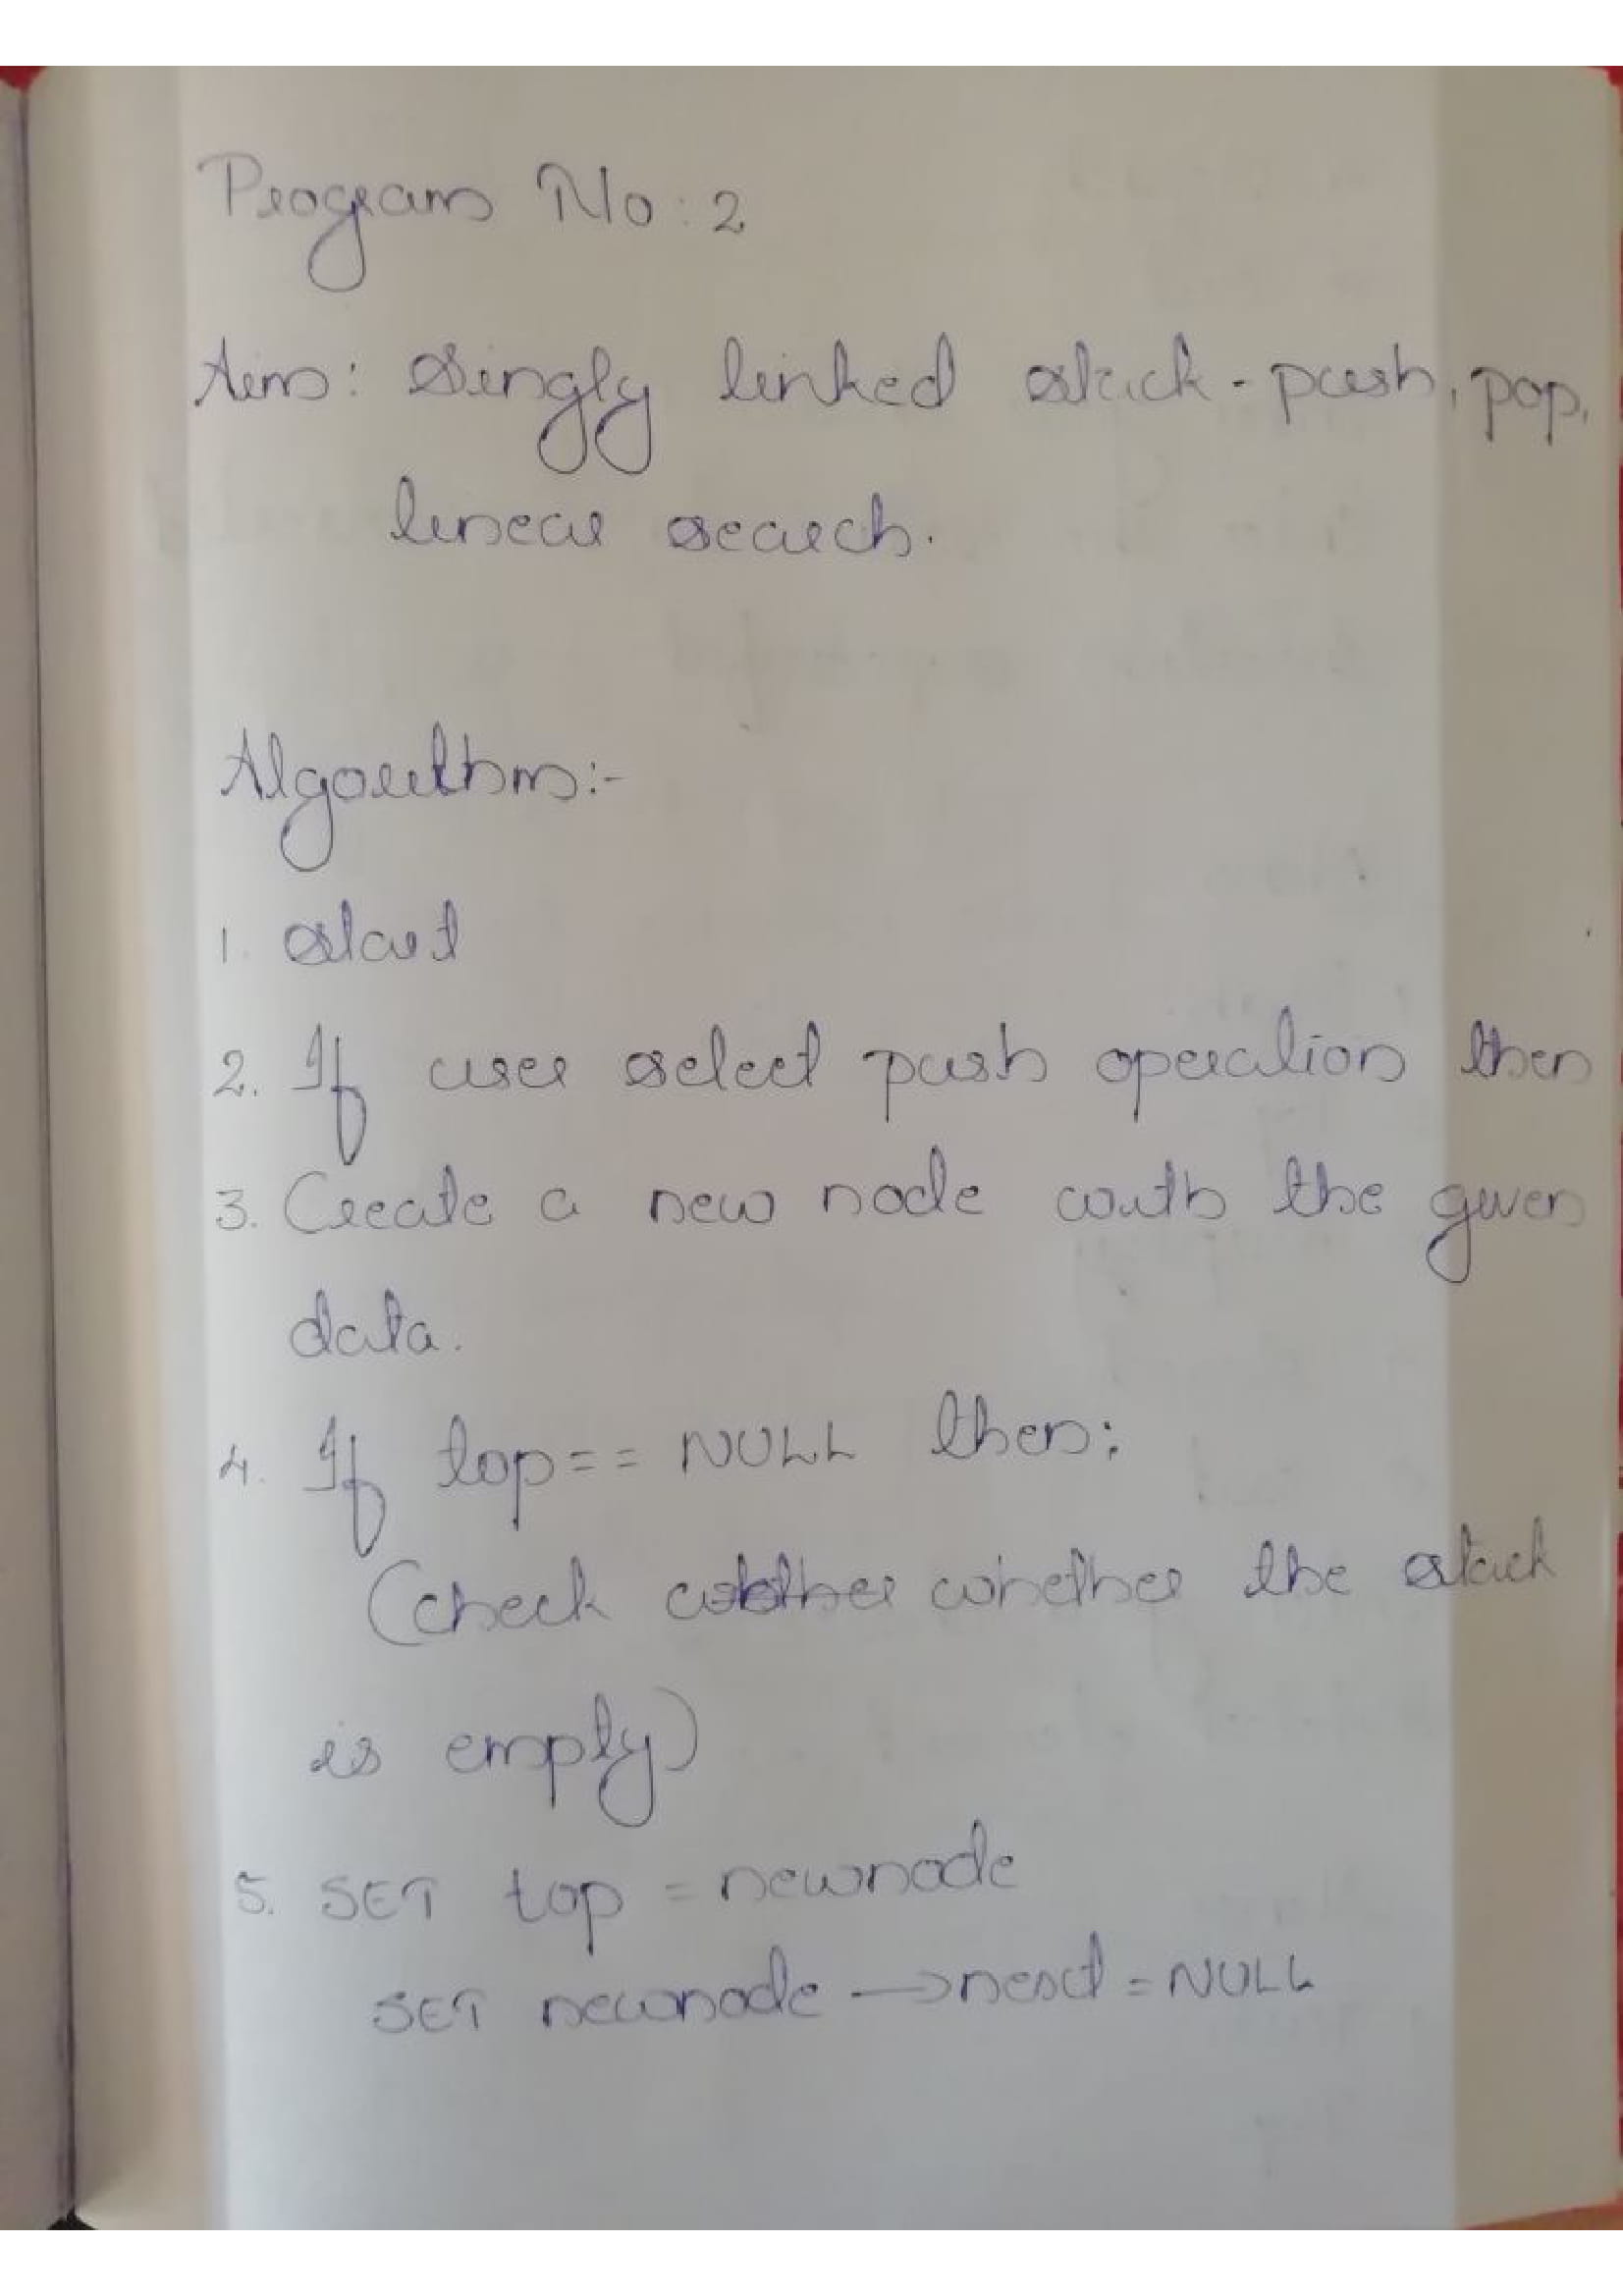 Program No: 2
Aim: Singly linked stack - push, pop,
linear search.
Algorithm:-
1. Start
2. If user select push operation then
3. Create a new node with the given
data.
4. If top == NULL then:
(check whether the stack
is empty)
5. SET top = newnode
SET newnode → next = NULL